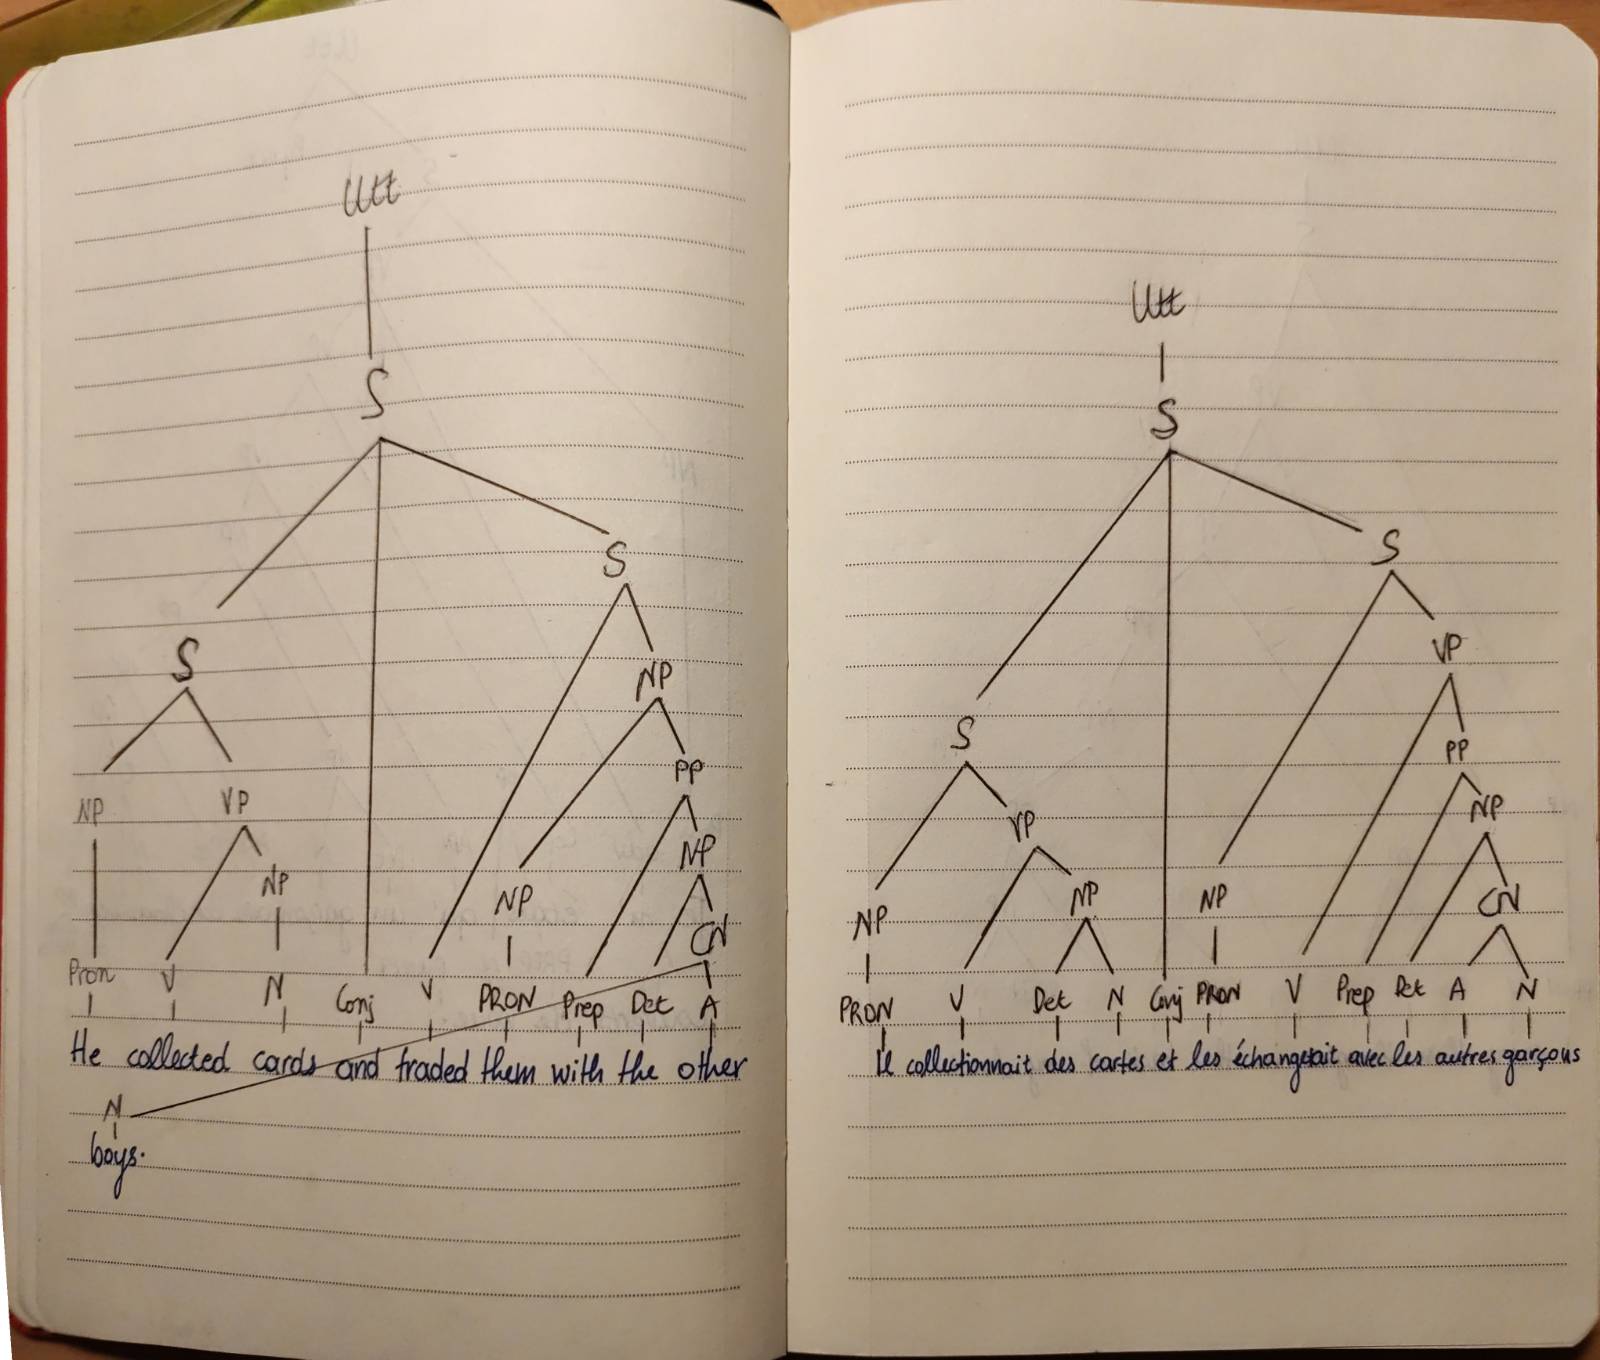 Utt
S
S
S
NP
NP VP
PP
NP
NP
NP
CN
Pron V N Conj V PRON Prep Det A
He collected cards and traded them with the other
N
boys.
Utt
S
S
VP
S
PP
VP
NP
NP
NP
NP
CN
PRON V Det N Conj PRON V Prep Det A N
il collectionnait des cartes et les échangeait avec les autres garçons